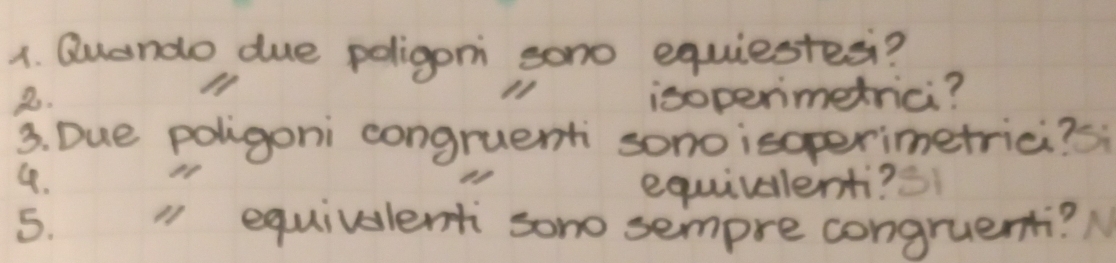 1. Quando due poligoni sono equiestesi?
2. " " isoperimetrici?
3. Due poligoni congruenti sono isoperimetrici? Si
4. " " equivalenti? SI
5. " equivalenti sono sempre congruenti? N